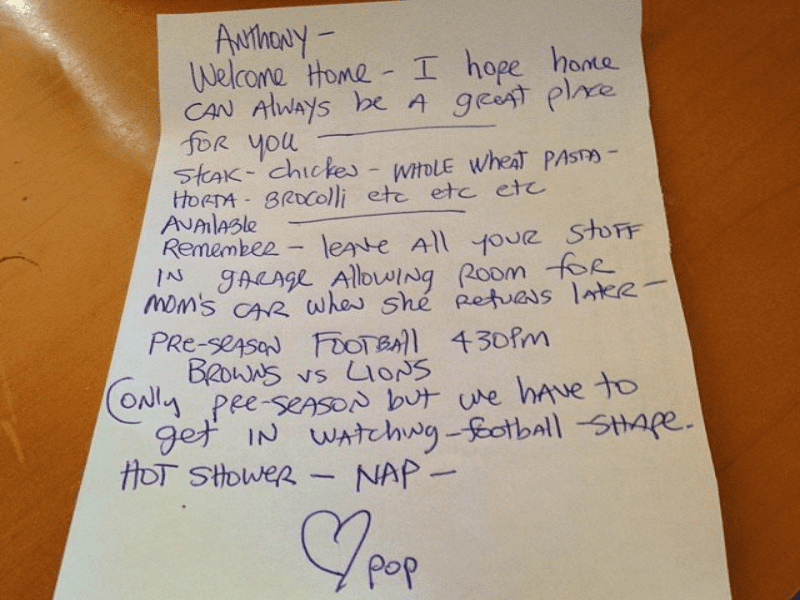 ANTHONY -
Welcome Home - I hope home
CAN Always be A great place
for you
Steak - chicken - WHOLE Wheat PASTA -
HORTA - BROCOlli etc etc etc
AVAilABle
Remember - leave All your STUFF
IN gARAge Allowing Room for
MOM'S CAR when she Returns later -
PRE-SEASON FOOTBAll 430pm
BROWNS vs LIONS
(ONly pre-SEASON but we have to
get IN WATChiNg-football SHAPE.
HOT SHOWER - NAP -
♡ pop